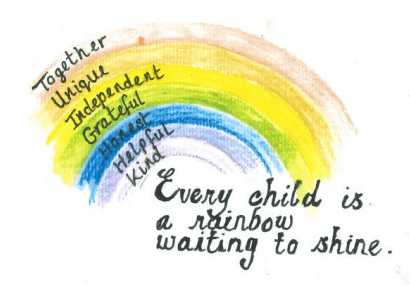 Together
Unique
Independent
Grateful
Honest
Helpful
Kind
Every child is
a rainbow
waiting to shine.